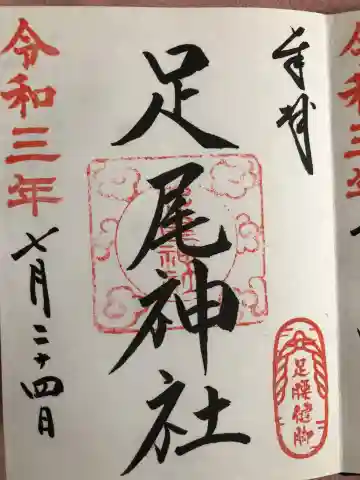 奉拝
足尾神社
足腰健脚
令和三年
七月二十四日